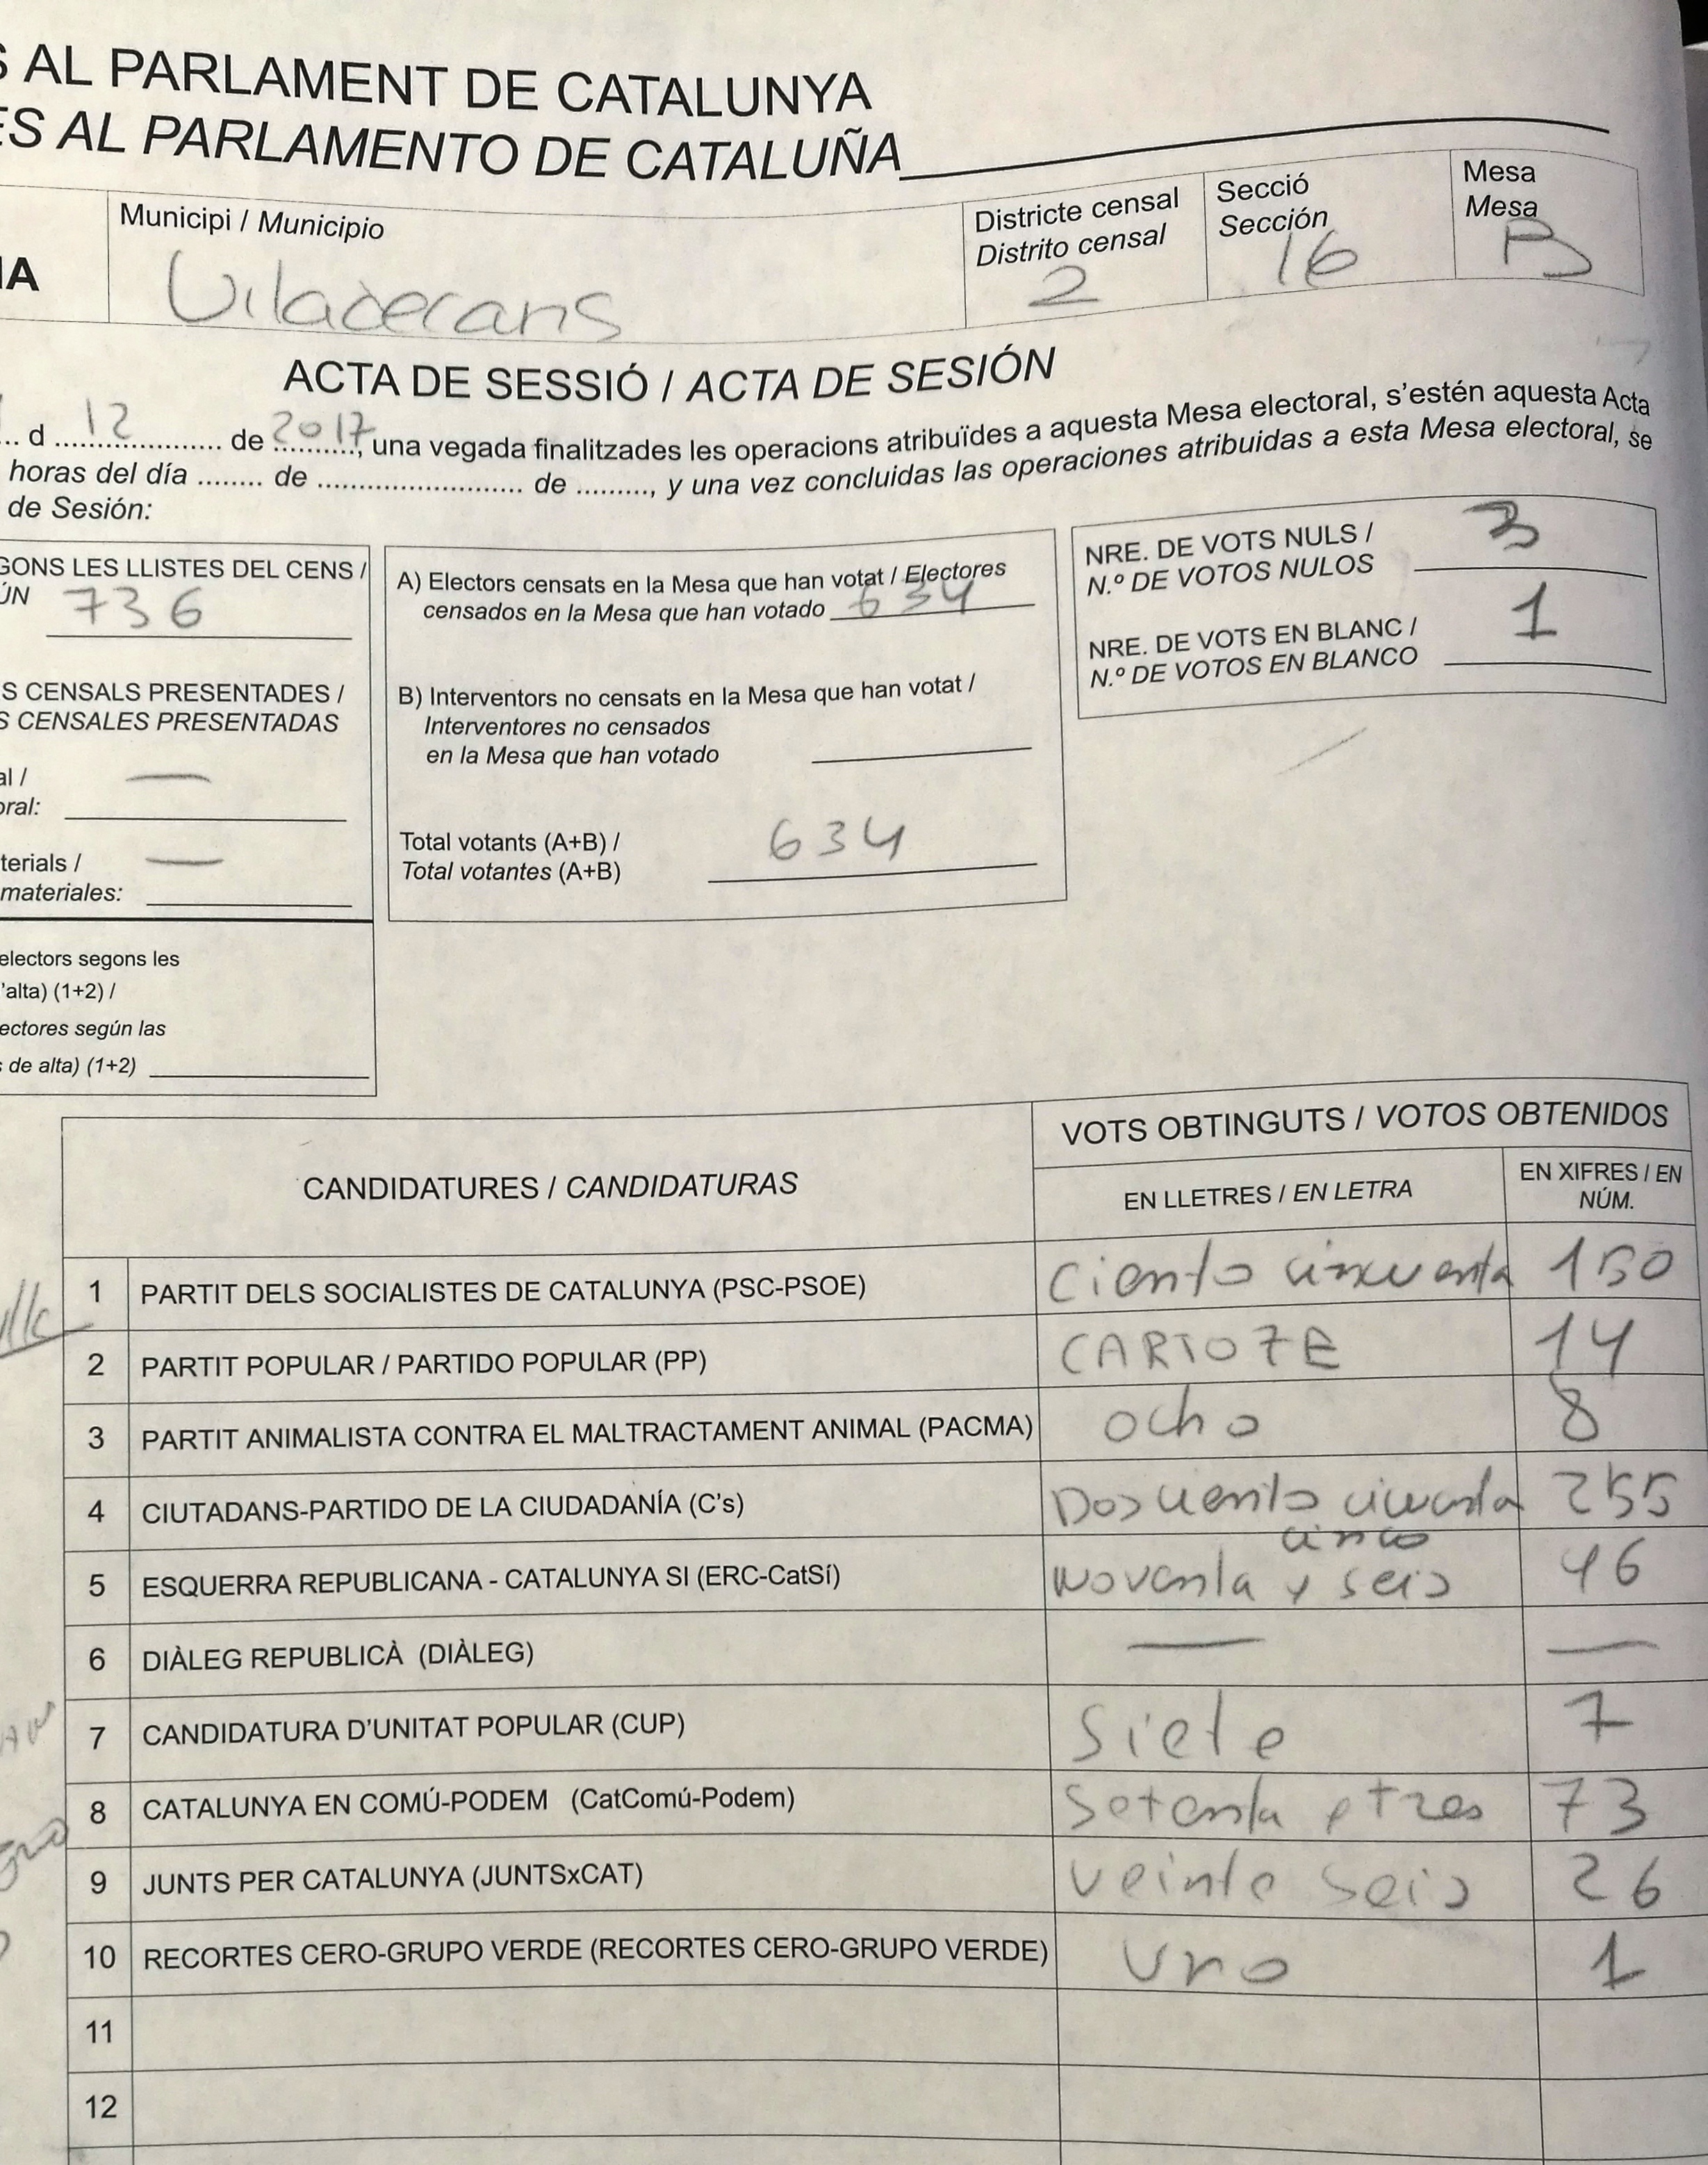 S AL PARLAMENT DE CATALUNYA
ES AL PARLAMENTO DE CATALUÑA
IA
Municipi / Municipio
Viladecans
Districte censal
Distrito censal
2
Secció
Sección
16
Mesa
Mesa
B
ACTA DE SESSIÓ / ACTA DE SESIÓN
... d 12 de 2017, una vegada finalitzades les operacions atribuïdes a aquesta Mesa electoral, s'estén aquesta Acta
horas del día ........ de ........................ de ........., y una vez concluidas las operaciones atribuidas a esta Mesa electoral, se
de Sesión:
GONS LES LLISTES DEL CENS /
ÚN 736
S CENSALS PRESENTADES /
S CENSALES PRESENTADAS
al / —
oral:
terials / —
materiales:
electors segons les
'alta) (1+2) /
ectores según las
s de alta) (1+2)
A) Electors censats en la Mesa que han votat / Electores
censados en la Mesa que han votado 634
B) Interventors no censats en la Mesa que han votat /
Interventores no censados
en la Mesa que han votado
Total votants (A+B) /
Total votantes (A+B) 634
NRE. DE VOTS NULS /
N.º DE VOTOS NULOS 3
NRE. DE VOTS EN BLANC /
N.º DE VOTOS EN BLANCO 1
CANDIDATURES / CANDIDATURAS
VOTS OBTINGUTS / VOTOS OBTENIDOS
EN LLETRES / EN LETRA
EN XIFRES / EN
NÚM.
1 PARTIT DELS SOCIALISTES DE CATALUNYA (PSC-PSOE) Ciento cincuenta 150
2 PARTIT POPULAR / PARTIDO POPULAR (PP) CARTO7E 14
3 PARTIT ANIMALISTA CONTRA EL MALTRACTAMENT ANIMAL (PACMA) ocho 8
4 CIUTADANS-PARTIDO DE LA CIUDADANÍA (C's) Doscuento cincuenta 255
cinco
5 ESQUERRA REPUBLICANA - CATALUNYA SI (ERC-CatSí) Noventa y seis 96
6 DIÀLEG REPUBLICÀ (DIÀLEG) — —
7 CANDIDATURA D'UNITAT POPULAR (CUP) Siete 7
8 CATALUNYA EN COMÚ-PODEM (CatComú-Podem) Setenta e tres 73
9 JUNTS PER CATALUNYA (JUNTSxCAT) veinte seis 26
10 RECORTES CERO-GRUPO VERDE (RECORTES CERO-GRUPO VERDE) uno 1
11
12